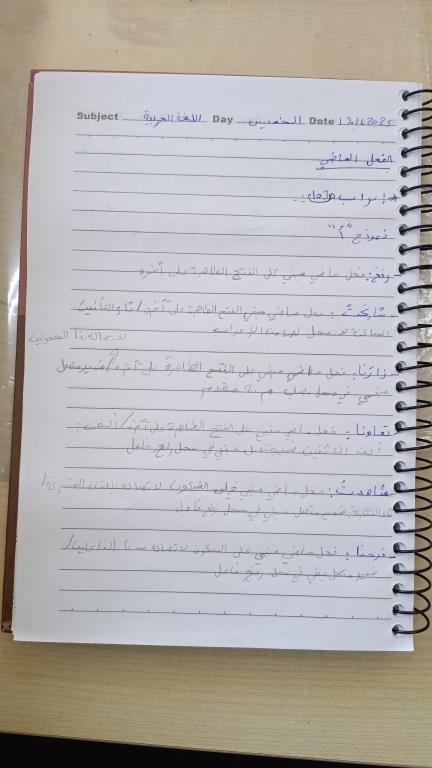 Subject اللغة العربية Day الخميس Date 13/11/2025
الفعل الماضي
إعراب ص30
نموذج "أ"
رفعَ: فعل ماضي مبني على الفتح الظاهرة على آخره
شاركتْ: فعل ماضي مبني الفتح الظاهرة على آخره/تاء التأنيث
الساكنة لا محل لها من الإعراب
لاتصاله بنا المفعولين
زارنا: فعل ماضي مبني على الفتح الظاهرة على آخره/ضمير متصل
مبني في محل نصب مقدم
تعاونا: فعل ماضي مبني على الفتح الظاهرة على آخره/ألف
ألف الاثنين ضمير متصل مبني في محل رفع فاعل
شاهدتُ: فعل ماضي مبني على السكون لاتصاله بالتاء المتحركة/
تاء المتحركة ضمير متصل مبني في محل رفع فاعل
فرحنا: فعل ماضي مبني على السكون لاتصاله بنا الفاعلين/
ضمير متصل مبني في محل رفع فاعل